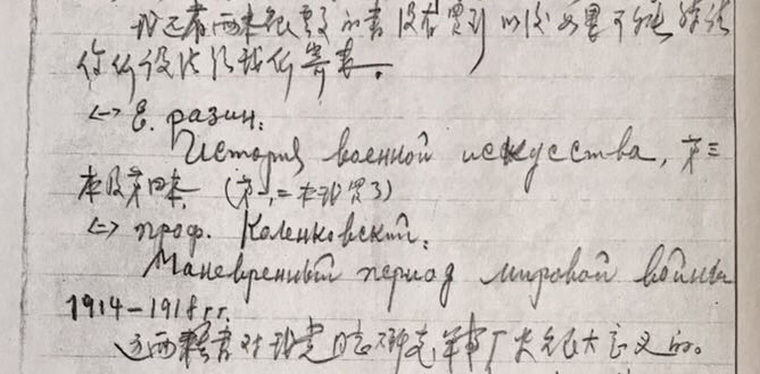 我还有两本很重要的書没有買到 以後如果可能 請
你们设法给我们寄来。
<一> Е. разин:
История военной искусства, 第三
本及第四本. (第一,二本我買了)
<二> проф. Коленковский:
Маневренный период мировой войны
1914-1918 г.г.
这两種書对我党同志研究軍事 很大意义的。